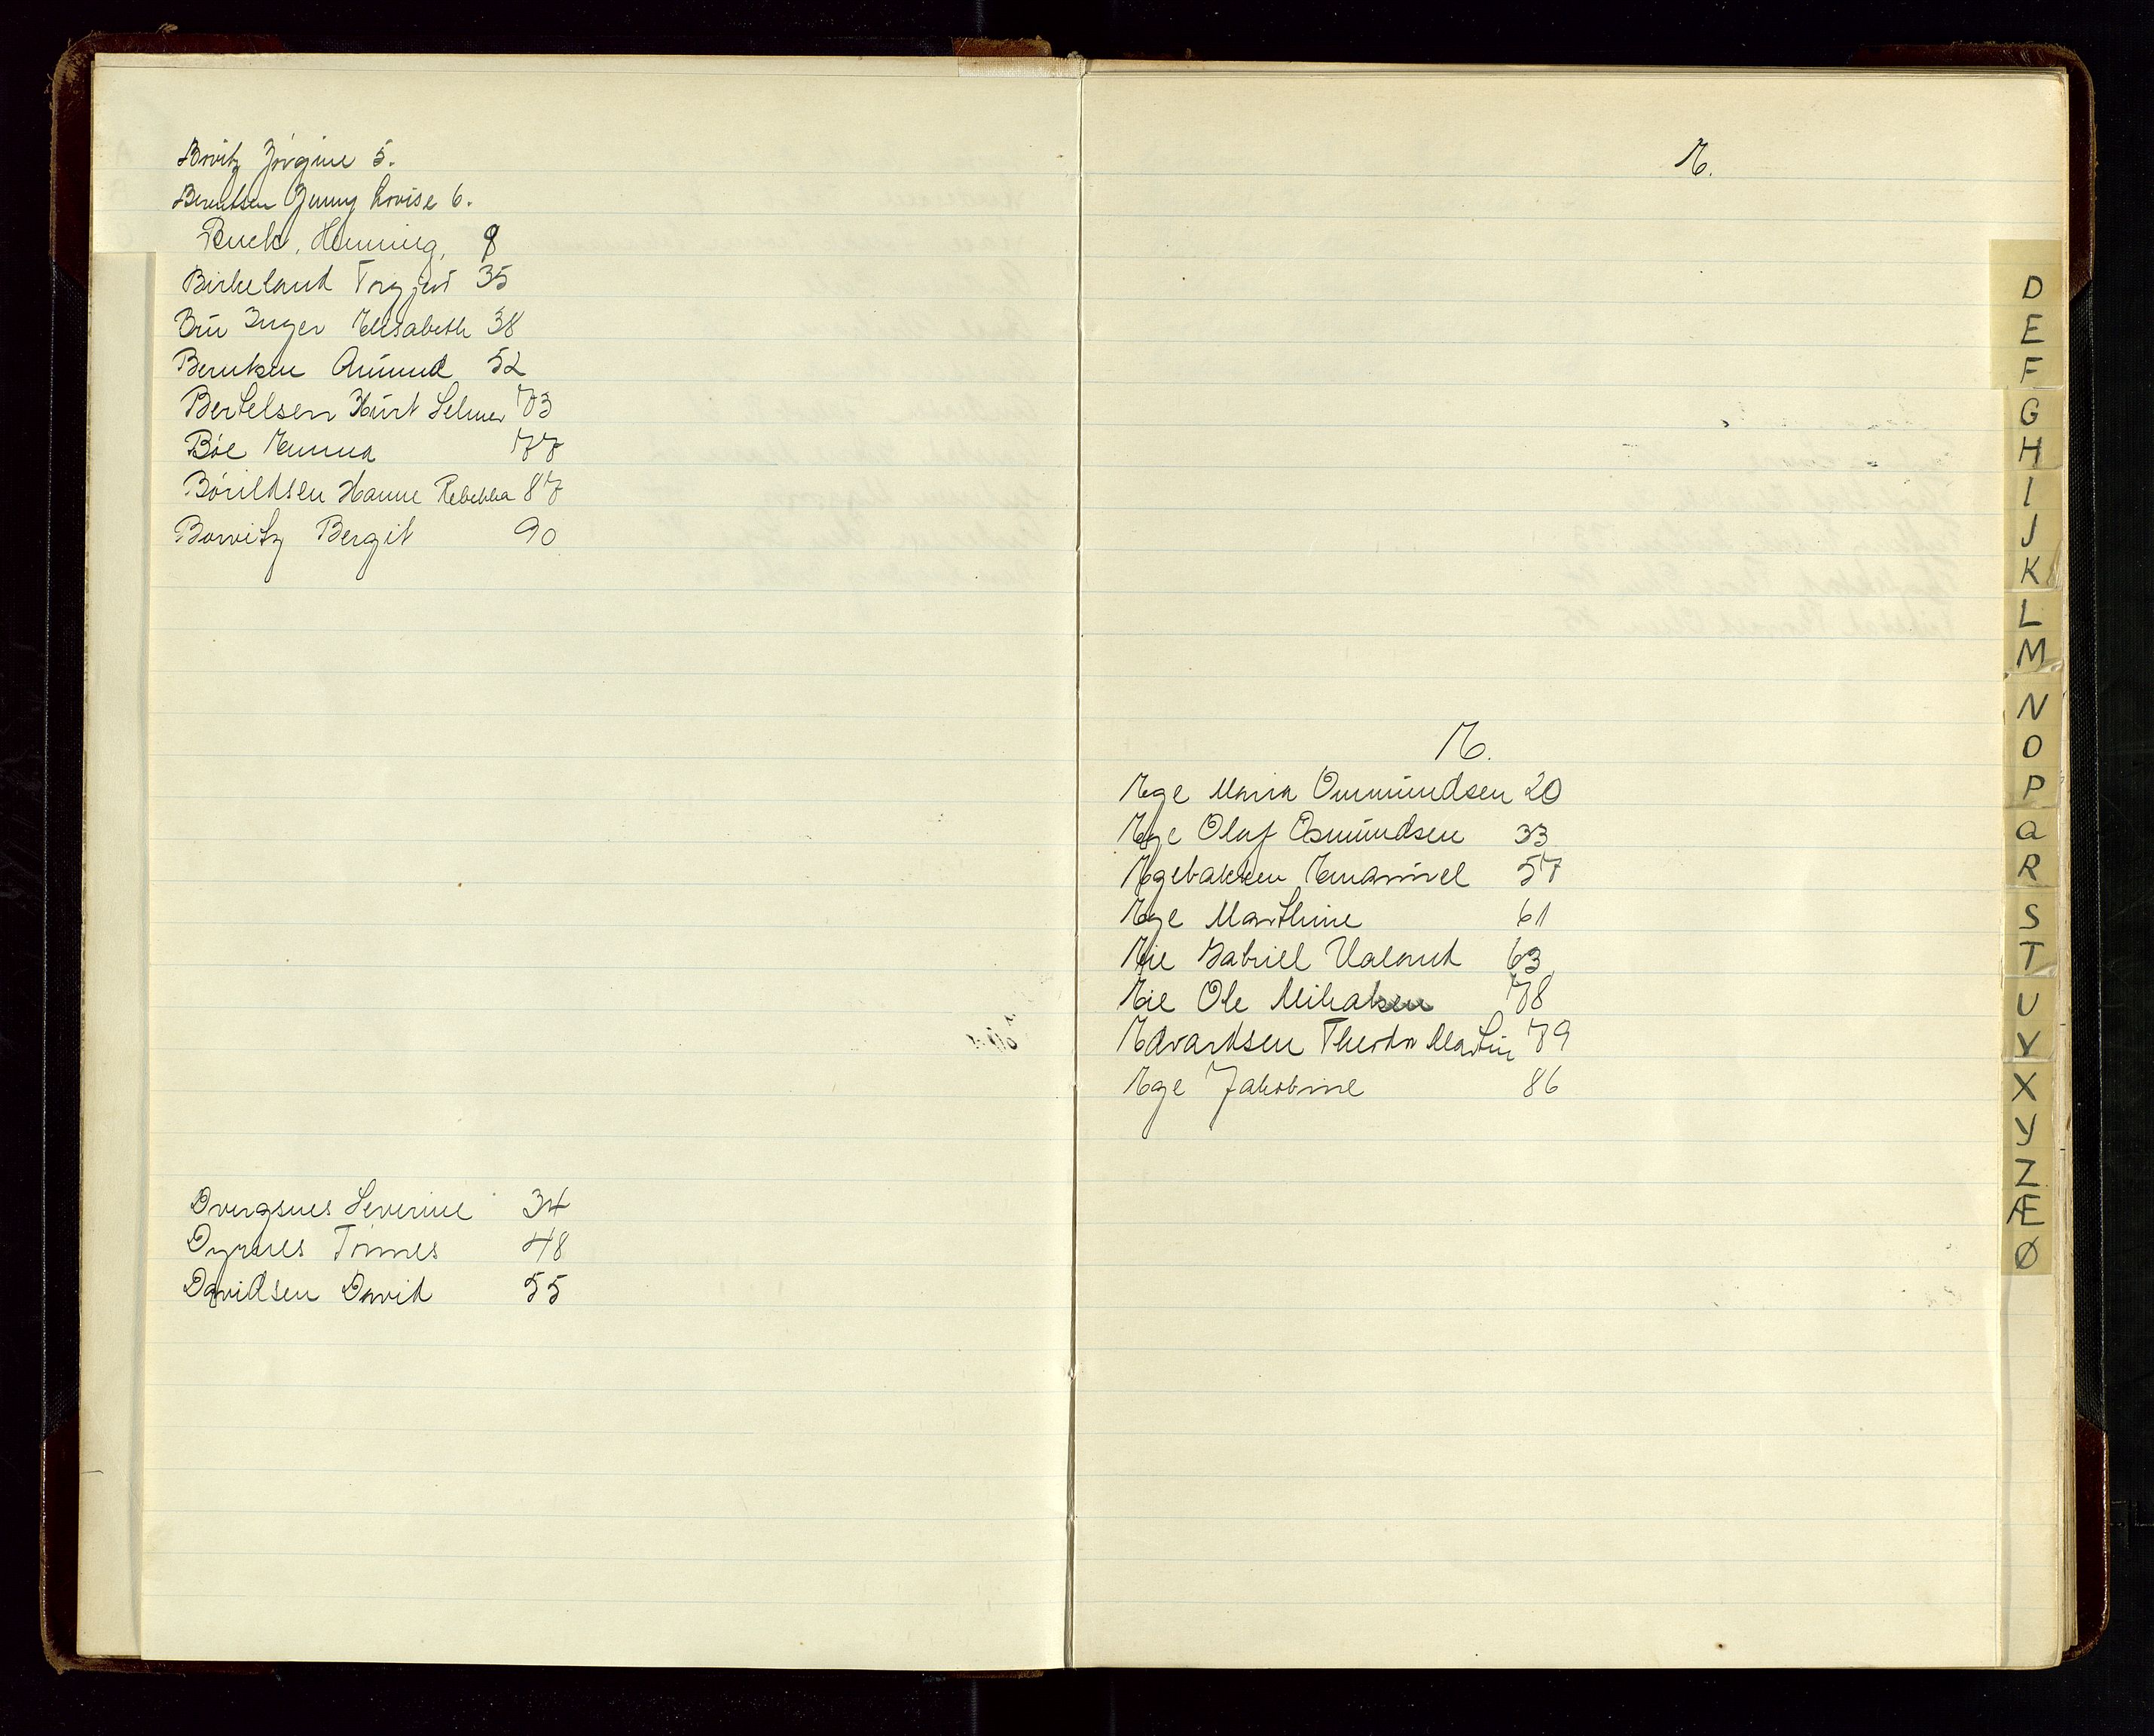 Bovitz Jørgine 5.
Berentsen Jenny Lovise 6.
Buck, Henning, 8
Birkeland Torgjert 35
Bru Inger Elisabeth 38
Berntsen Amund 52
Bertelsen Kurt Selmer 73
Bøe Emma 77
Børildsen Hanne Rebekka 87
Borvitz Bergit 90
Dvergsnes Severine 34
Dyrnes Tønnes 48
Davidsen David 55
E.
E.
Ege Maria Ommundsen 20
Ege Olaf Osmundsen 33
Egebakken Emanuel 57
Ege Marthine 61
Eie Gabriel Valand 63
Eie Ole Mikalsen 78
Edvardsen Theodor Martin 79
Ege Jakobine 86
D
E
F
G
H
I
J
K
L
M
N
O
P
Q
R
S
T
U
V
X
Y
Z
Æ
Ø